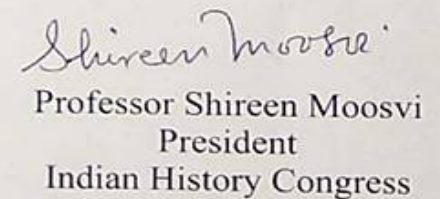 Shireen Moosvi
Professor Shireen Moosvi
President
Indian History Congress